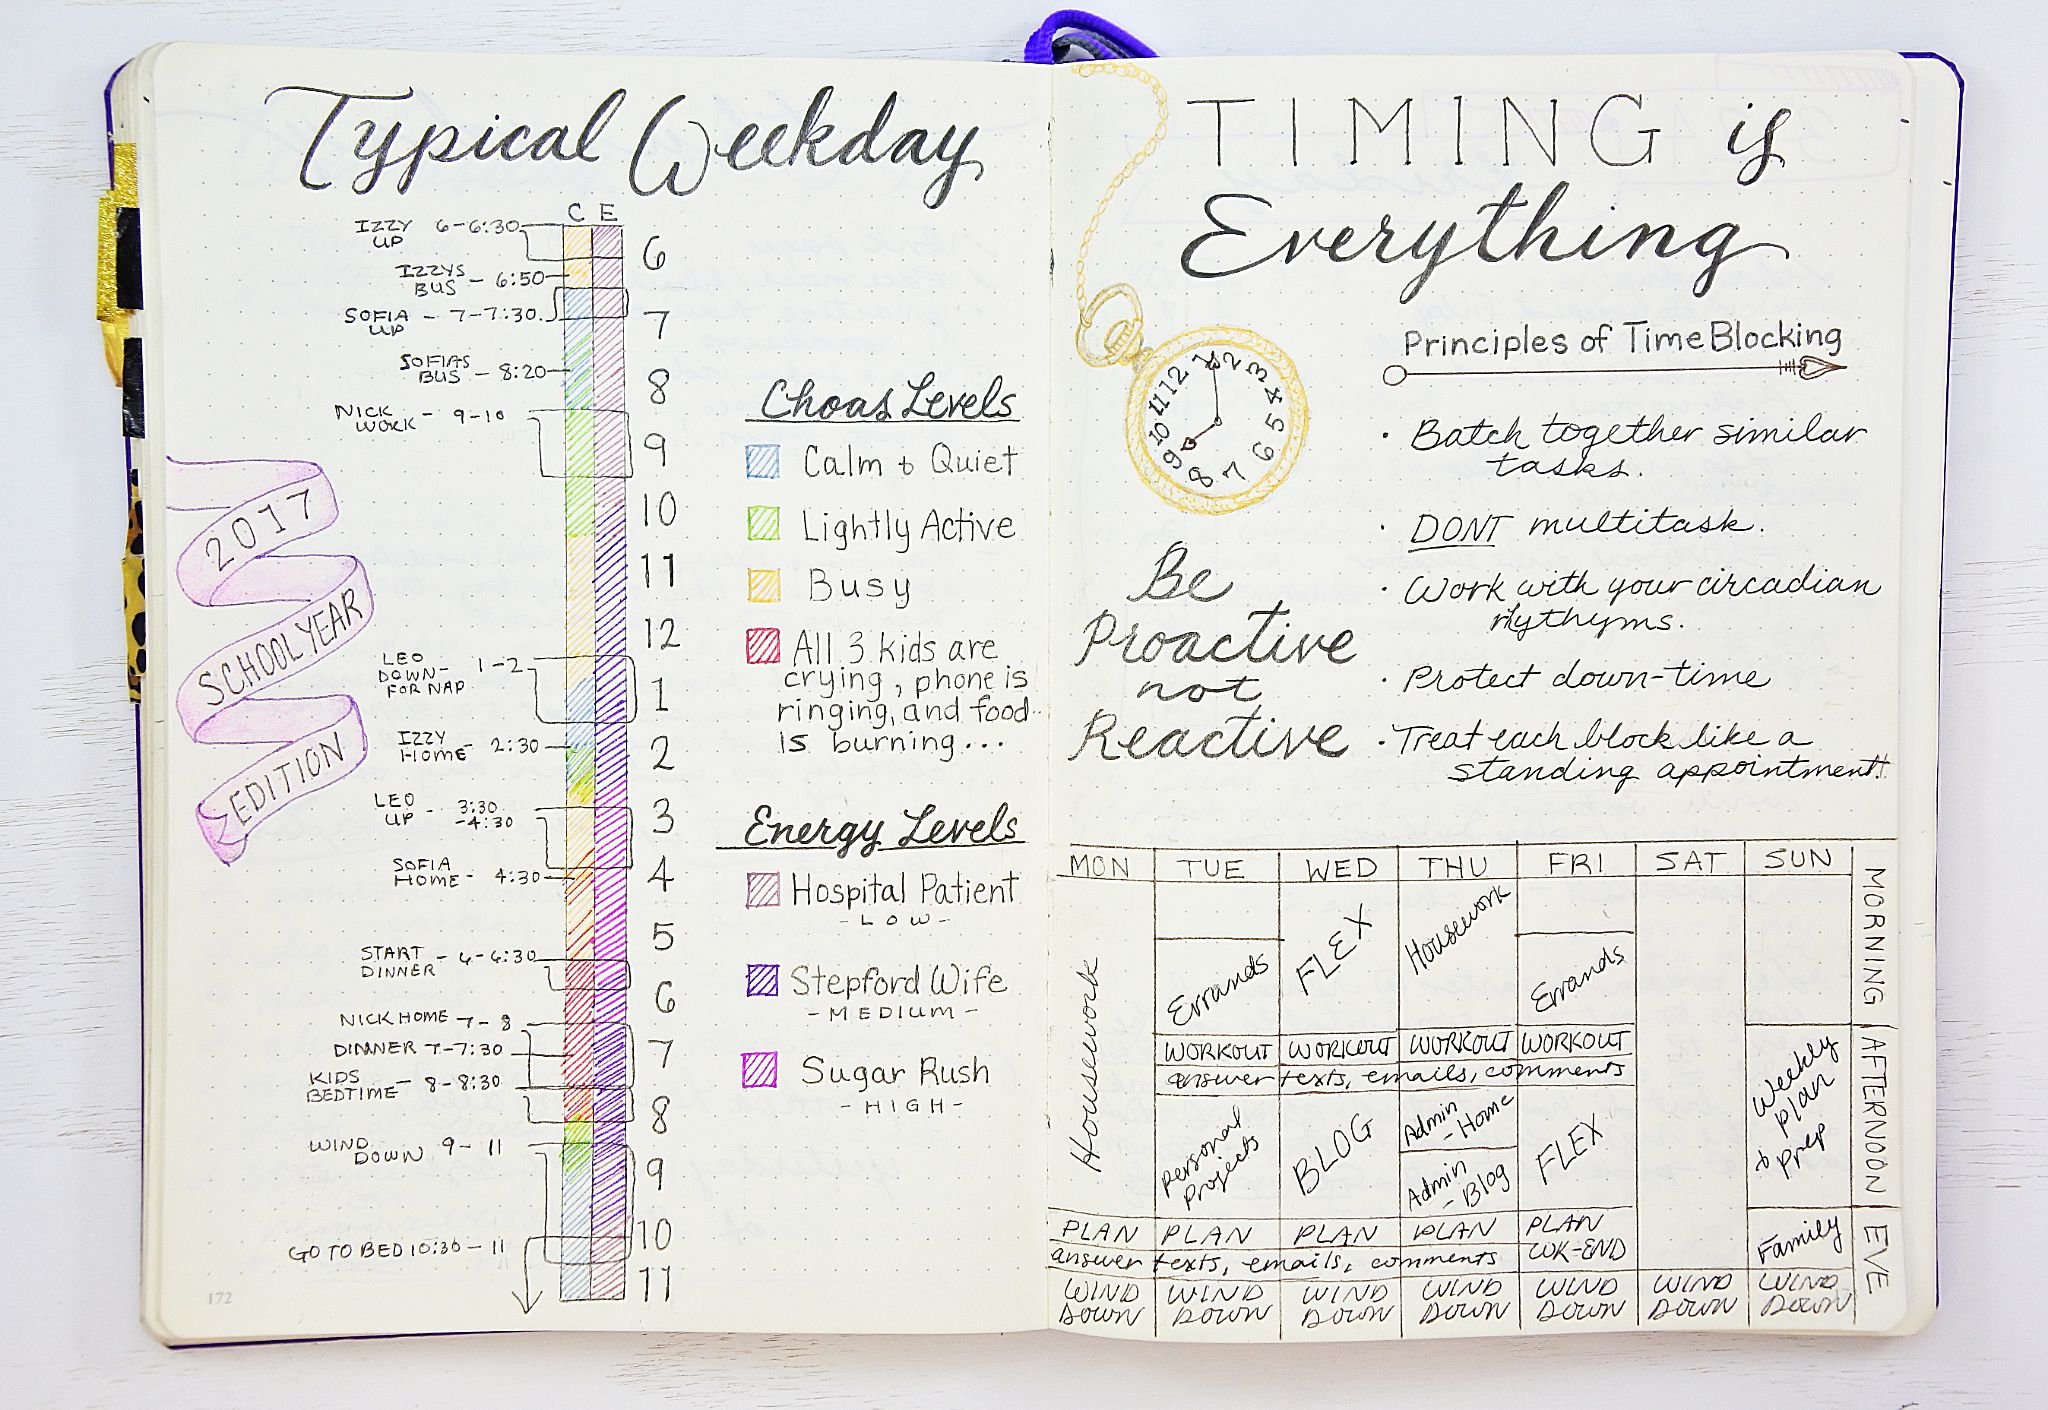 Typical Weekday
C E
IZZY UP 6-6:30
IZZYS BUS - 6:50
SOFIA UP - 7-7:30
SOFIAS BUS - 8:20
NICK WORK - 9-10
LEO DOWN- FOR NAP 1-2
IZZY HOME - 2:30
LEO UP - 3:30 -4:30
SOFIA HOME - 4:30
START DINNER - 6-6:30
NICK HOME 7-8
DINNER 7-7:30
KIDS BEDTIME - 8-8:30
WIND DOWN 9-11
GO TO BED 10:30-11
6
7
8
9
10
11
12
1
2
3
4
5
6
7
8
9
10
11
2017
SCHOOL YEAR
EDITION
172
Choas Levels
Calm & Quiet
Lightly Active
Busy
All 3 kids are
crying, phone is
ringing, and food
is burning...
Energy Levels
Hospital Patient
- LOW -
Stepford Wife
- MEDIUM -
Sugar Rush
- HIGH -
TIMING is
Everything
12 1 2 3 4 5 6 7 8 9 10 11
Be
Proactive
not
Reactive
Principles of Time Blocking
· Batch together similar
tasks.
· DONT multitask.
· Work with your circadian
rhythyms.
· Protect down-time
· Treat each block like a
standing appointment!!
MON TUE WED THU FRI SAT SUN
MORNING
AFTERNOON
EVE
Housework
Errands
FLEX
Housework
Errands
WORKOUT WORKOUT WORKOUT WORKOUT
answer texts, emails, comments
Personal
Projects
BLOG
Admin
- Home
Admin
- Blog
FLEX
Weekly
plan
& prep
PLAN PLAN PLAN PLAN PLAN
WK-END
answer texts, emails, comments
Family
WIND WIND WIND WIND WIND WIND WIND
DOWN DOWN DOWN DOWN DOWN DOWN DOWN